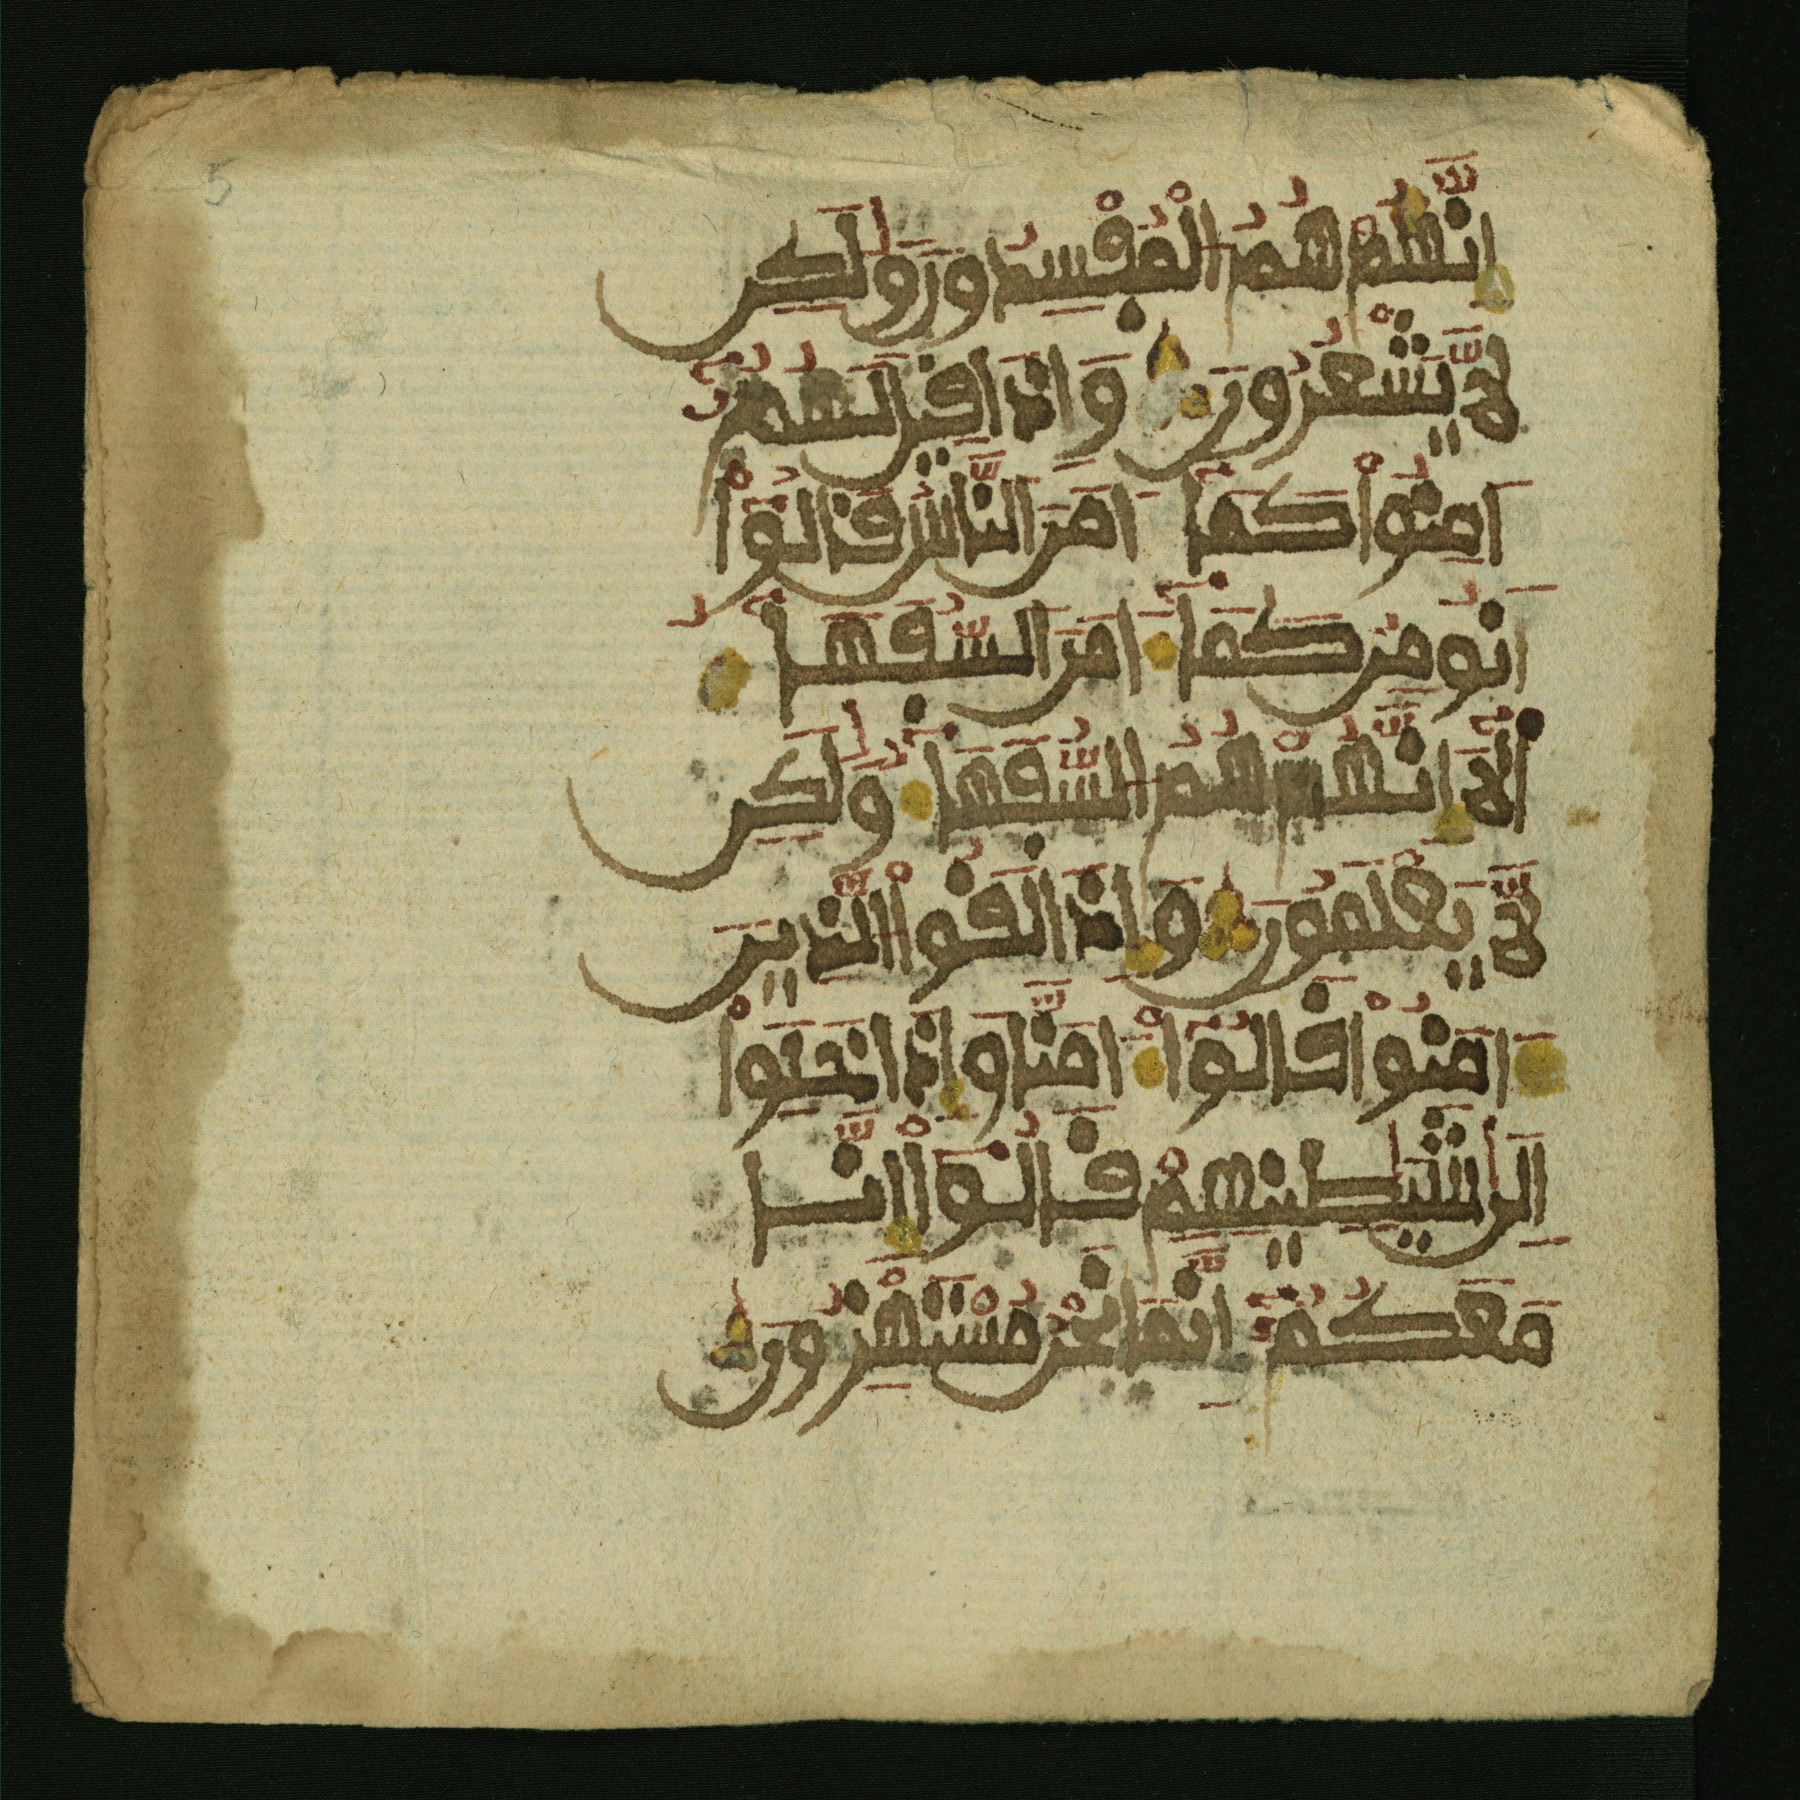 5
اِنَّهُمْ هُمُ الْمُفْسِدُونَ وَلَٰكِن
لَّا يَشْعُرُونَ وَإِذَا قِيلَ لَهُمُ
ءَامِنُواْ كَمَا ءَامَنَ النَّاسُ قَالُواْ
أَنُومِنُ كَمَا ءَامَنَ السُّفَهَا
أَلَا إِنَّهُمْ هُمُ السُّفَهَا وَلَٰكِن
لَّا يَعْلَمُونَ وَإِذَا لَقُواْ الَّذِينَ
ءَامَنُواْ قَالُواْ ءَامَنَّا وَإِذَا خَلَوْاْ
اِلَىٰ شَيَٰطِينِهِمْ قَالُواْ إِنَّا
مَعَكُمُ إِنَّمَا نَحْنُ مُسْتَهْزِءُونَ